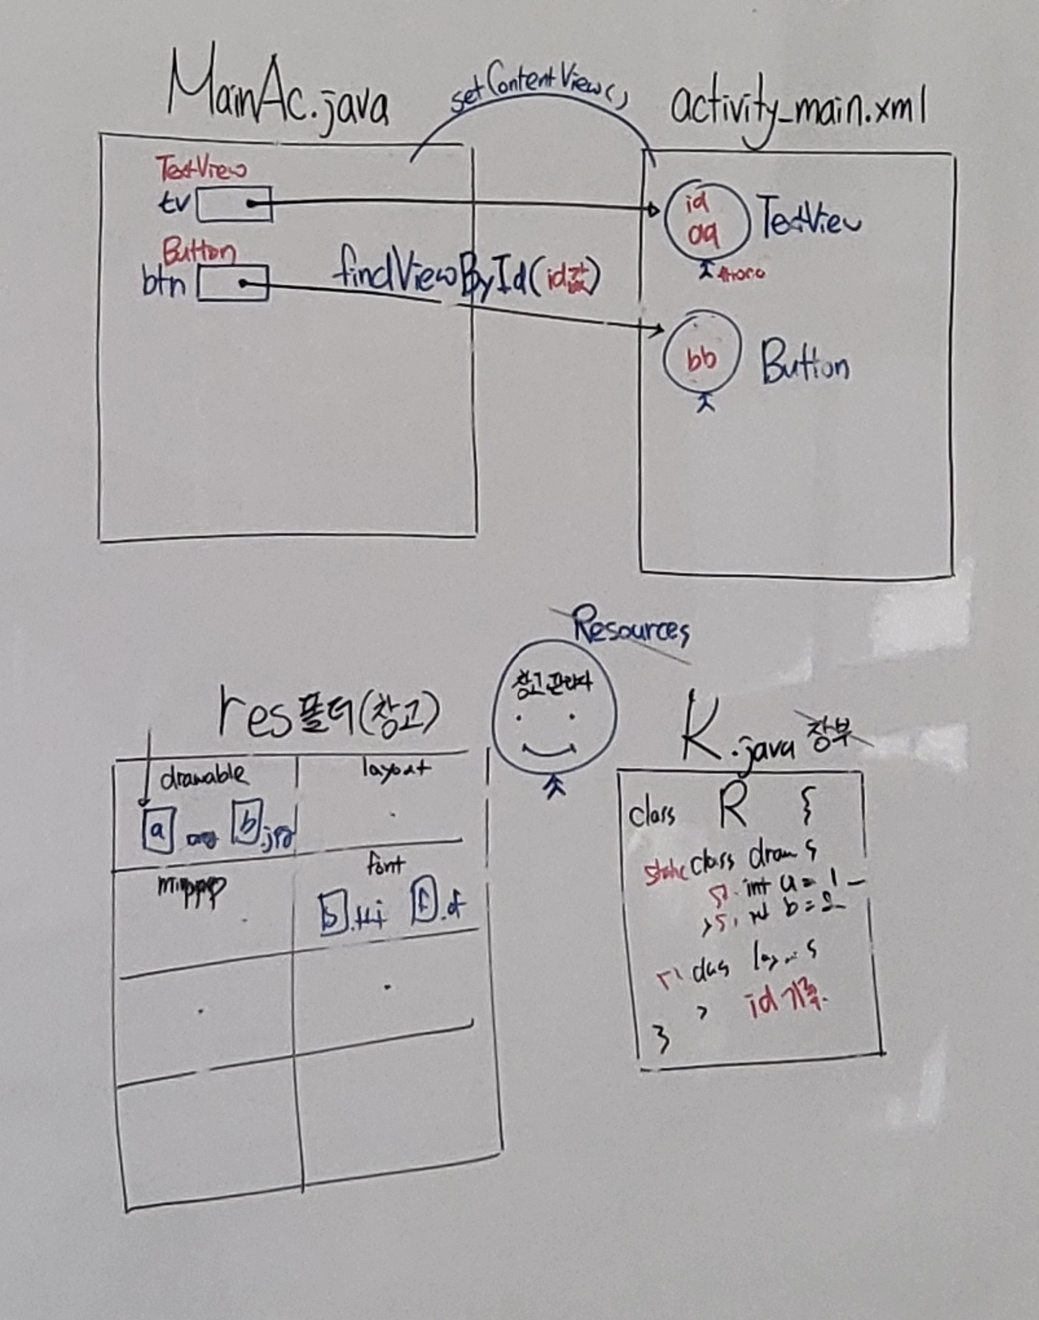 MainAc.java
setContentView()
activity_main.xml
TextView
tv
id
aa
TextView
Button
btn
findViewById(id값)
bb
Button
Resources
창고관리자
res폴더(창고)
R.java 장부
drawable
layout
a
b.jpg
font
class R {
static class draw
int a = 1
b = 2
id 기록
}